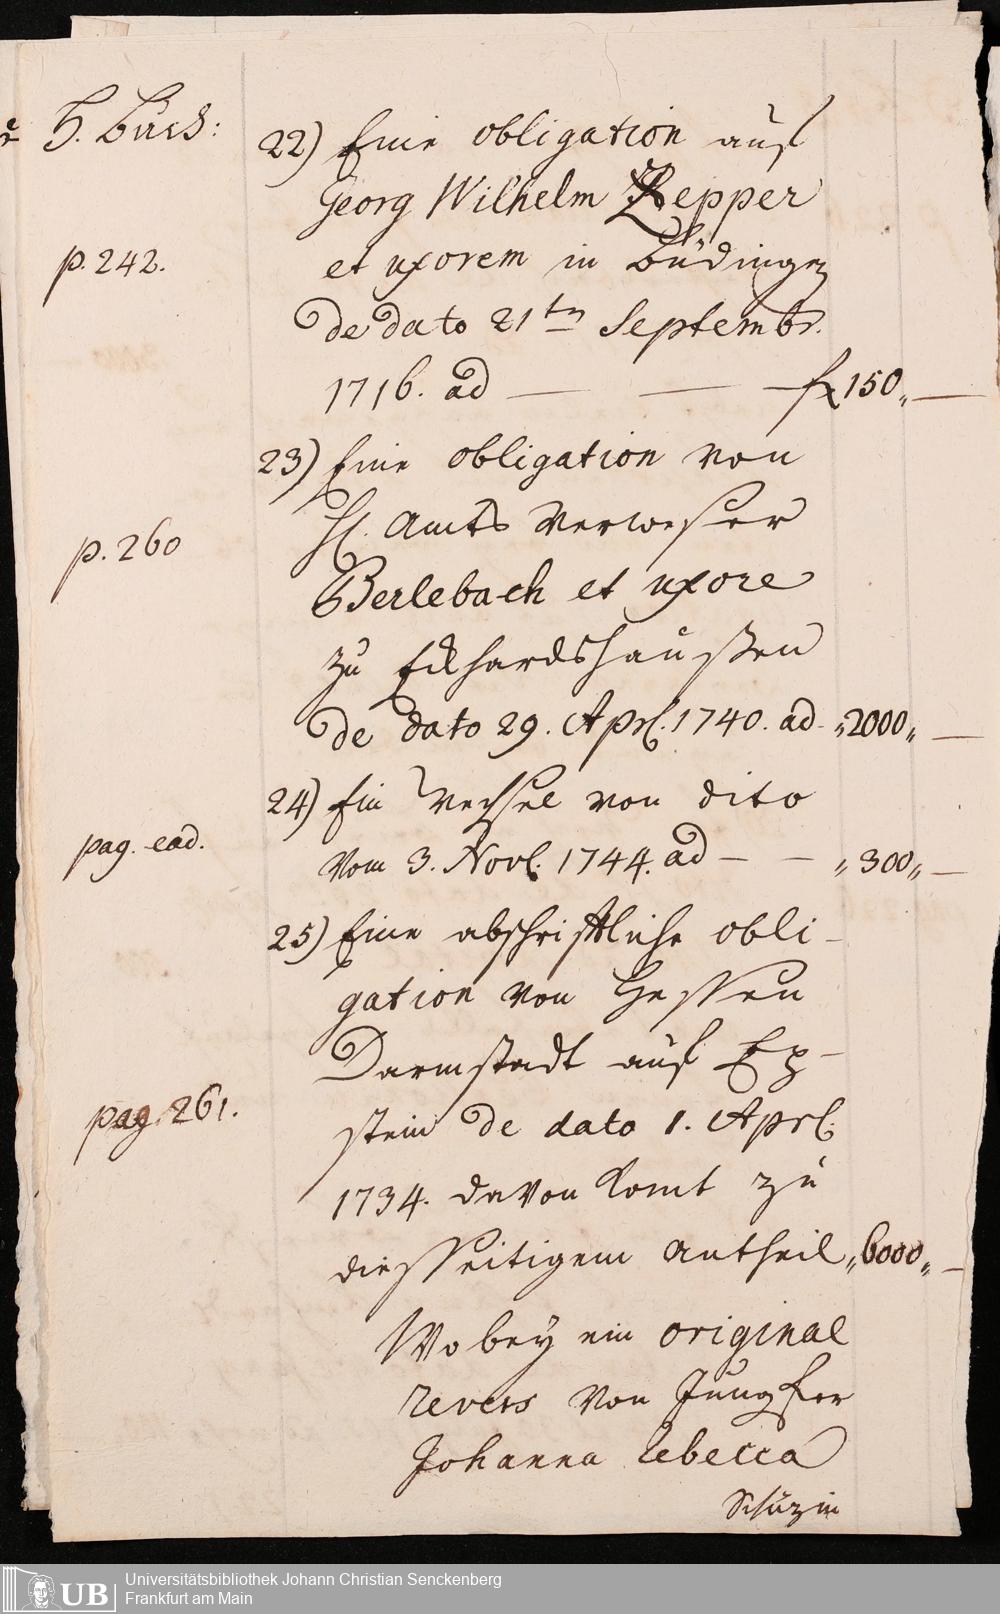 H. Buch:
22) Eine obligation auf
Georg Wilhelm Repper
p. 242.
et uxorem in Büdingen
de dato 21tn Septembr.
1716. ad — — — f 150„ —
23) Eine obligation von
H. Amts Verweser
p. 260
Berlebach et uxore
zu Eckhardshaußen
de dato 29. Aprl. 1740. ad „2000„ —
24) Ein Wechsel von dito
pag. ead.
Vom 3. Novl. 1744. ad — — „300„ —
25) Eine abschriftliche obli-
gation von Hessen
Darmstadt auf Ep-
pag. 261.
stein de dato 1. Aprl.
1734. davon komt zu
diesseitigem Antheil „6000„ —
Wobey ein original
revers von Jungfer
Johanna Rebecca
Schüzin
UB
Universitätsbibliothek Johann Christian Senckenberg
Frankfurt am Main